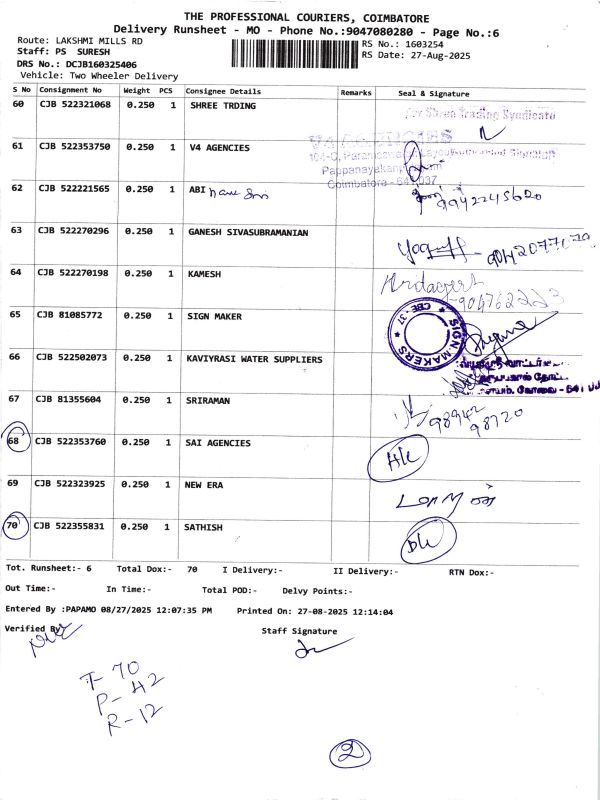 THE PROFESSIONAL COURIERS, COIMBATORE
Delivery Runsheet - MO - Phone No.:9047080280 - Page No.:6
Route: LAKSHMI MILLS RD
Staff: PS SURESH
DRS No.: DCJB160325406
Vehicle: Two Wheeler Delivery
RS No.: 1603254
RS Date: 27-Aug-2025
S No Consignment No Weight PCS Consignee Details Remarks Seal & Signature
60 CJB 522321068 0.250 1 SHREE TRDING
for Shree Trading Syndicate
61 CJB 522353750 0.250 1 V4 AGENCIES
V4 AGENCIES
Coimbatore - 641 037
62 CJB 522221565 0.250 1 ABI
9942245620
63 CJB 522270296 0.250 1 GANESH SIVASUBRAMANIAN
64 CJB 522270198 0.250 1 KAMESH
65 CJB 81085772 0.250 1 SIGN MAKER
SIGN MAKERS CBE - 37
66 CJB 522502073 0.250 1 KAVIYRASI WATER SUPPLIERS
67 CJB 81355604 0.250 1 SRIRAMAN
98942
98720
68 CJB 522353760 0.250 1 SAI AGENCIES
69 CJB 522323925 0.250 1 NEW ERA
70 CJB 522355831 0.250 1 SATHISH
Tot. Runsheet:- 6 Total Dox:- 70 I Delivery:- II Delivery:- RTN Dox:-
Out Time:- In Time:- Total POD:- Delvy Points:-
Entered By :PAPAMO 08/27/2025 12:07:35 PM Printed On: 27-08-2025 12:14:04
Verified By
Staff Signature
T- 70
P- 42
R- 12
2